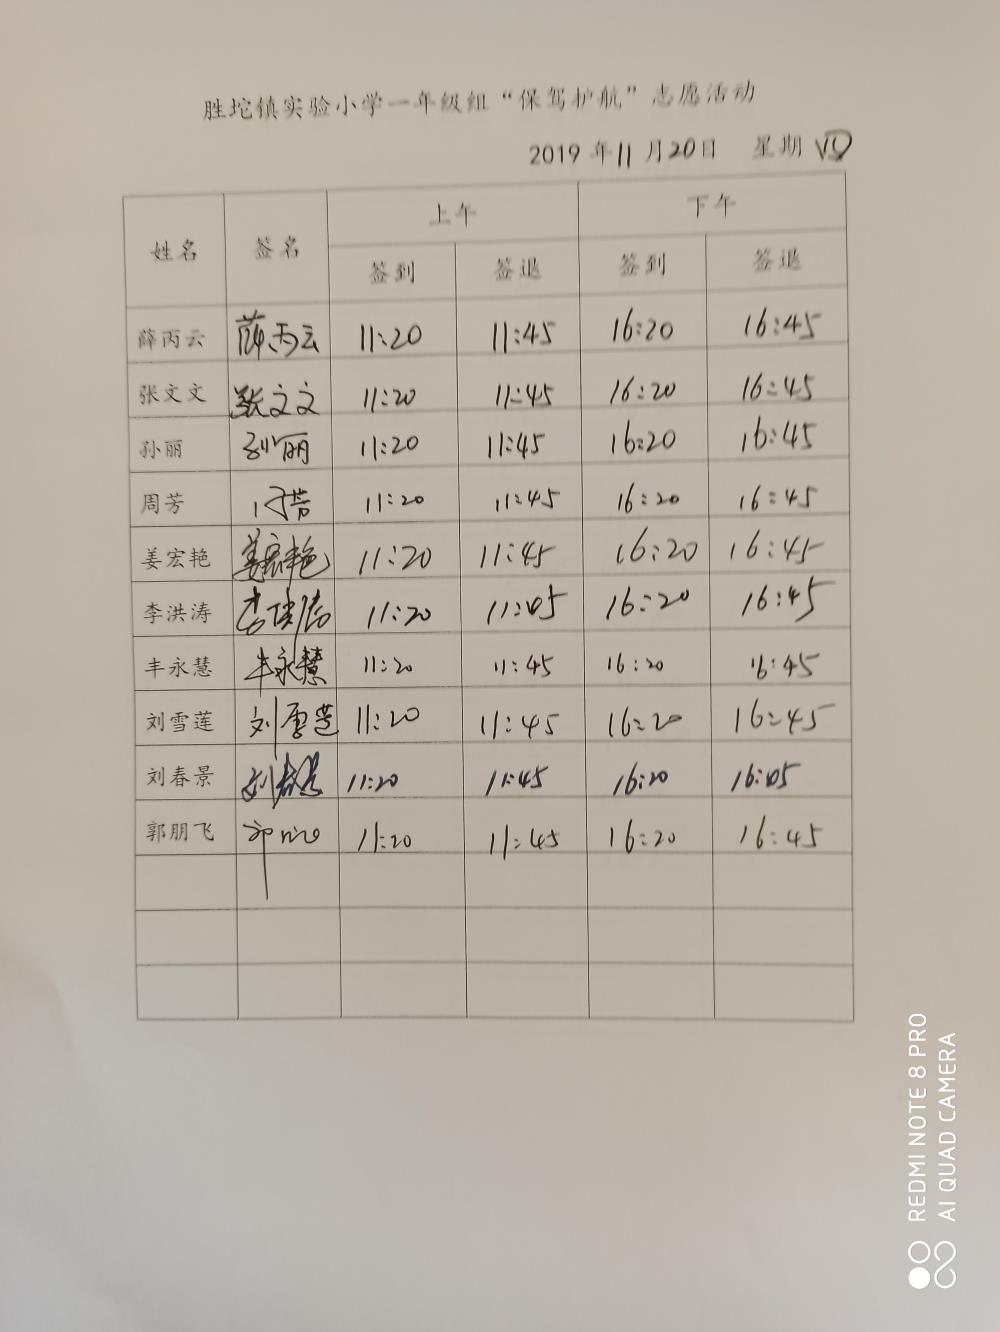 胜坨镇实验小学一年级组“保驾护航”志愿活动
2019 年 11 月 20 日 星期 四
姓名 签名 上午 下午
签到 签退 签到 签退
薛丙云 薛丙云 11:20 11:45 16:20 16:45
张文文 张文文 11:20 11:45 16:20 16:45
孙丽 孙丽 11:20 11:45 16:20 16:45
周芳 周芳 11:20 11:45 16:20 16:45
姜宏艳 姜宏艳 11:20 11:45 16:20 16:45
李洪涛 李洪涛 11:20 11:05 16:20 16:45
丰永慧 丰永慧 11:20 11:45 16:20 16:45
刘雪莲 刘雪莲 11:20 11:45 16:20 16:45
刘春景 刘春景 11:20 11:45 16:20 16:05
郭朋飞 11:20 11:45 16:20 16:45
REDMI NOTE 8 PRO
AI QUAD CAMERA